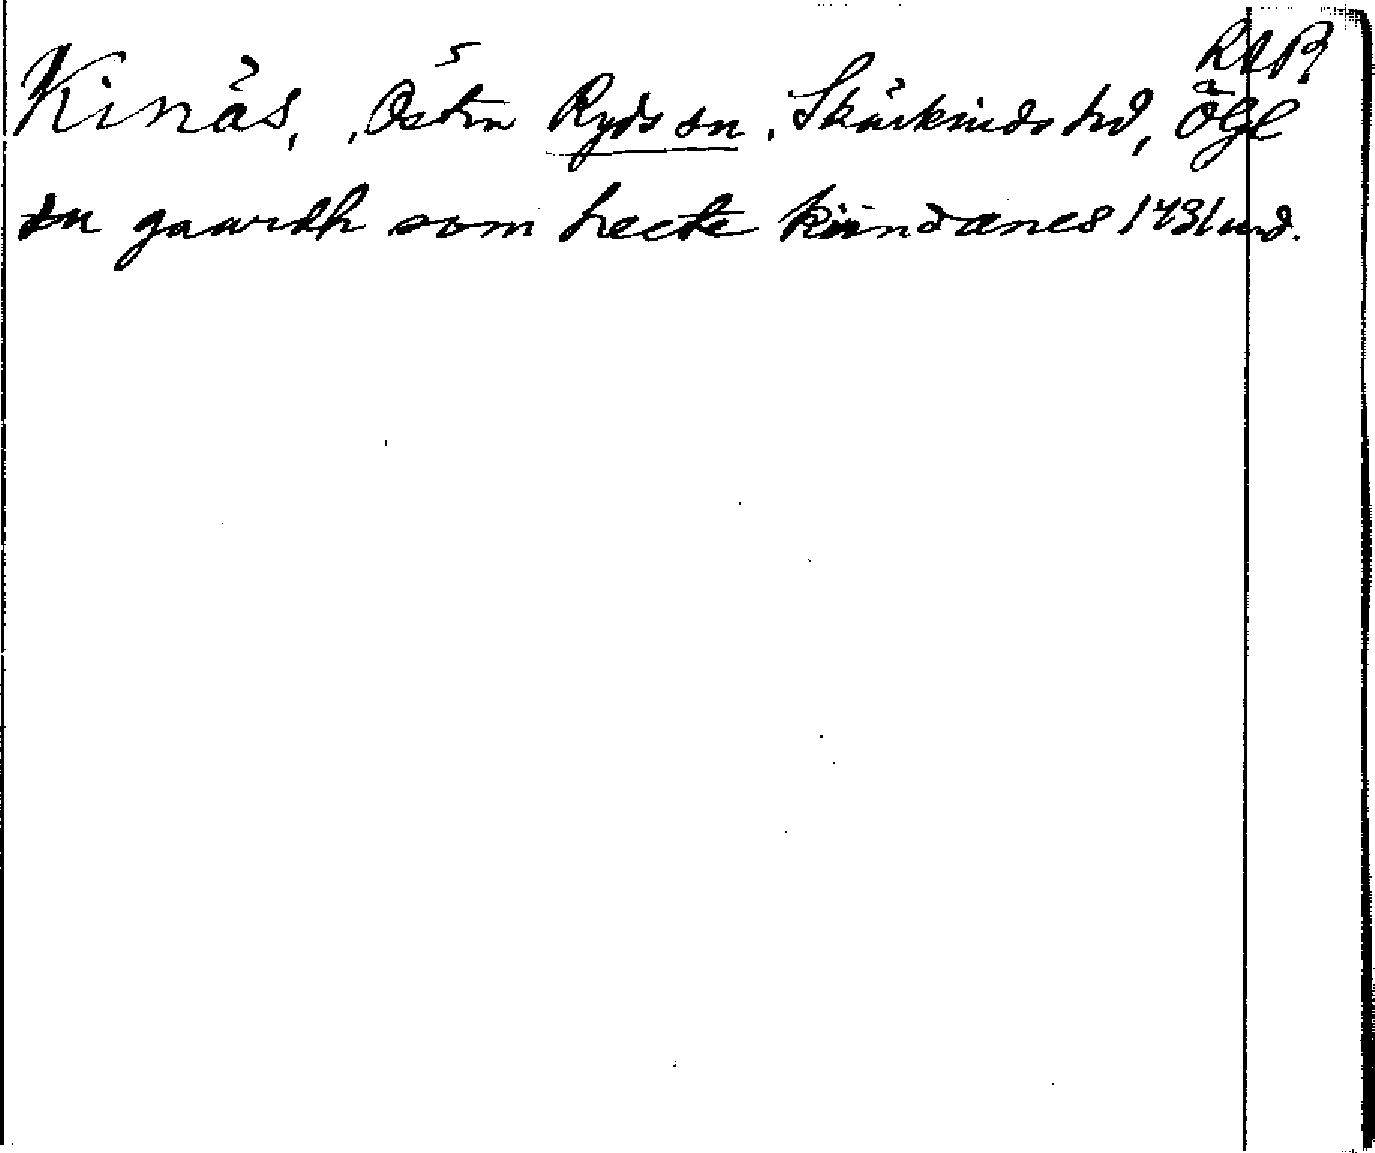 RAP
Kinäs, Östra Ryds sn, Skärkinds hd, Ögl
en gaardh som heete kiindænes 1431 und.